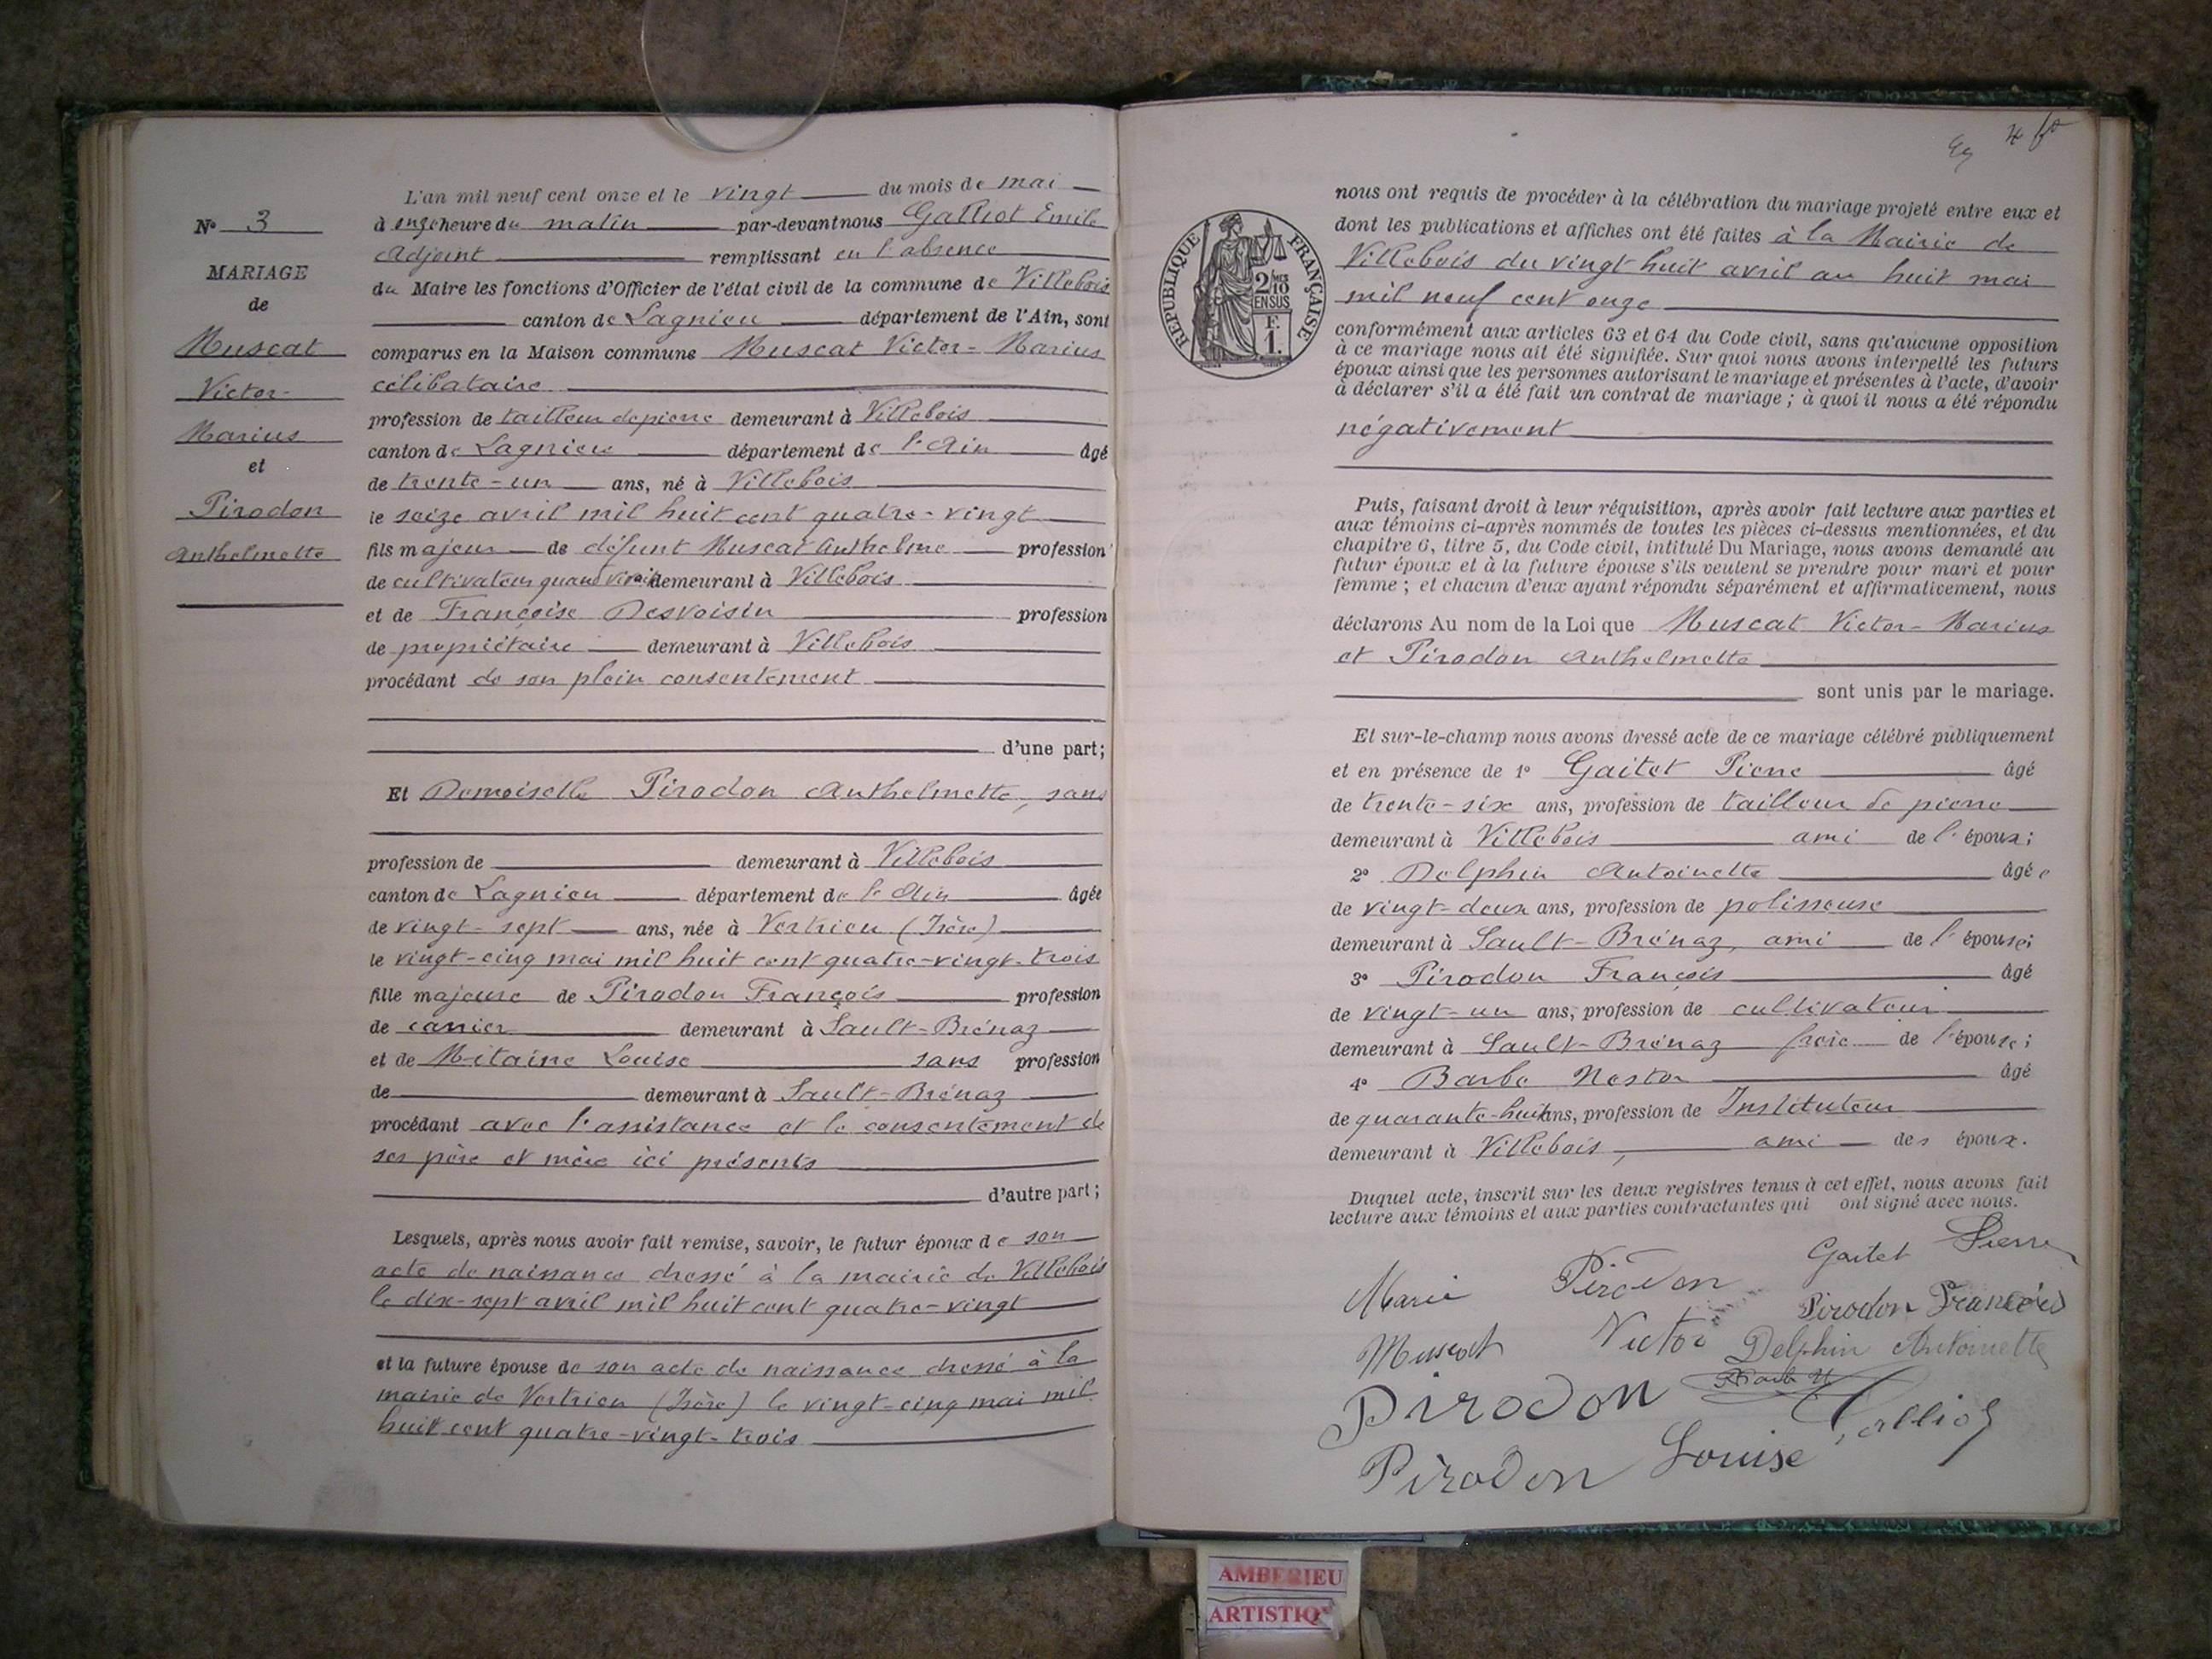 N° 3
MARIAGE
de
Muscat
Victor-
Marius
et
Pirodon
Anthelmette
L'an mil neuf cent onze et le vingt du mois de mai
à onze heure du matin par-devant nous Galliot Emile
Adjoint remplissant en l'absence
du Maire les fonctions d'Officier de l'état civil de la commune de Villebois
canton de Lagnieu département de l'Ain, sont
comparus en la Maison commune Muscat Victor-Marius
célibataire
profession de tailleur de pierre demeurant à Villebois
canton de Lagnieu département de l'Ain âgé
de trente-un ans, né à Villebois
le seize avril mil huit cent quatre-vingt
fils majeur de défunt Muscat Anthelme profession
de cultivateur quand vivait demeurant à Villebois
et de Françoise Desvoisin profession
de propriétaire demeurant à Villebois
procédant de son plein consentement
d'une part;
Et Demoiselle Pirodon Anthelmette, sans
profession de demeurant à Villebois
canton de Lagnieu département de l'Ain âgée
de vingt-sept ans, née à Vertrieu (Isère)
le vingt-cinq mai mil huit cent quatre-vingt-trois
fille majeure de Pirodon François profession
de carrier demeurant à Sault-Brénaz
et de Mitaine Louise sans profession
de demeurant à Sault-Brénaz
procédant avec l'assistance et le consentement de
ses père et mère ici présents
d'autre part;
Lesquels, après nous avoir fait remise, savoir, le futur époux de son
acte de naissance dressé à la mairie de Villebois
le dix-sept avril mil huit cent quatre-vingt
et la future épouse de son acte de naissance dressé à la
mairie de Vertrieu (Isère) le vingt-cinq mai mil
huit cent quatre-vingt-trois
RÉPUBLIQUE FRANÇAISE
2/10 MES
EN SUS
F.
1.
nous ont requis de procéder à la célébration du mariage projeté entre eux et
dont les publications et affiches ont été faites à la Mairie de
Villebois du vingt huit avril au huit mai
mil neuf cent onze
conformément aux articles 63 et 64 du Code civil, sans qu'aucune opposition
à ce mariage nous ait été signifiée. Sur quoi nous avons interpellé les futurs
époux ainsi que les personnes autorisant le mariage et présentes à l'acte, d'avoir
à déclarer s'il a été fait un contrat de mariage; à quoi il nous a été répondu
négativement
Puis, faisant droit à leur réquisition, après avoir fait lecture aux parties et
aux témoins ci-après nommés de toutes les pièces ci-dessus mentionnées, et du
chapitre 6, titre 5, du Code civil, intitulé Du Mariage, nous avons demandé au
futur époux et à la future épouse s'ils veulent se prendre pour mari et pour
femme; et chacun d'eux ayant répondu séparément et affirmativement, nous
déclarons Au nom de la Loi que Muscat Victor-Marius
et Pirodon Anthelmette
sont unis par le mariage.
Et sur-le-champ nous avons dressé acte de ce mariage célébré publiquement
et en présence de 1° Gaitet Pierre âgé
de trente-six ans, profession de tailleur de pierre
demeurant à Villebois ami de l'époux;
2° Delphin Antoinette âgée
de vingt-deux ans, profession de polisseuse
demeurant à Sault-Brénaz, ami de l'épouse;
3° Pirodon François âgé
de vingt-un ans, profession de cultivateur
demeurant à Sault-Brénaz frère de l'épouse;
4° Barbe Nestor âgé
de quarante-huit ans, profession de Instituteur
demeurant à Villebois, ami des époux.
Duquel acte, inscrit sur les deux registres tenus à cet effet, nous avons fait
lecture aux témoins et aux parties contractantes qui ont signé avec nous.
Marie Pirodon Gaitet Pierre
Pirodon François
Muscat Victor Delphin Antoinette
Barbe N
Pirodon Galliot
Pirodon Louise
AMBERIEU
ARTISTIQ